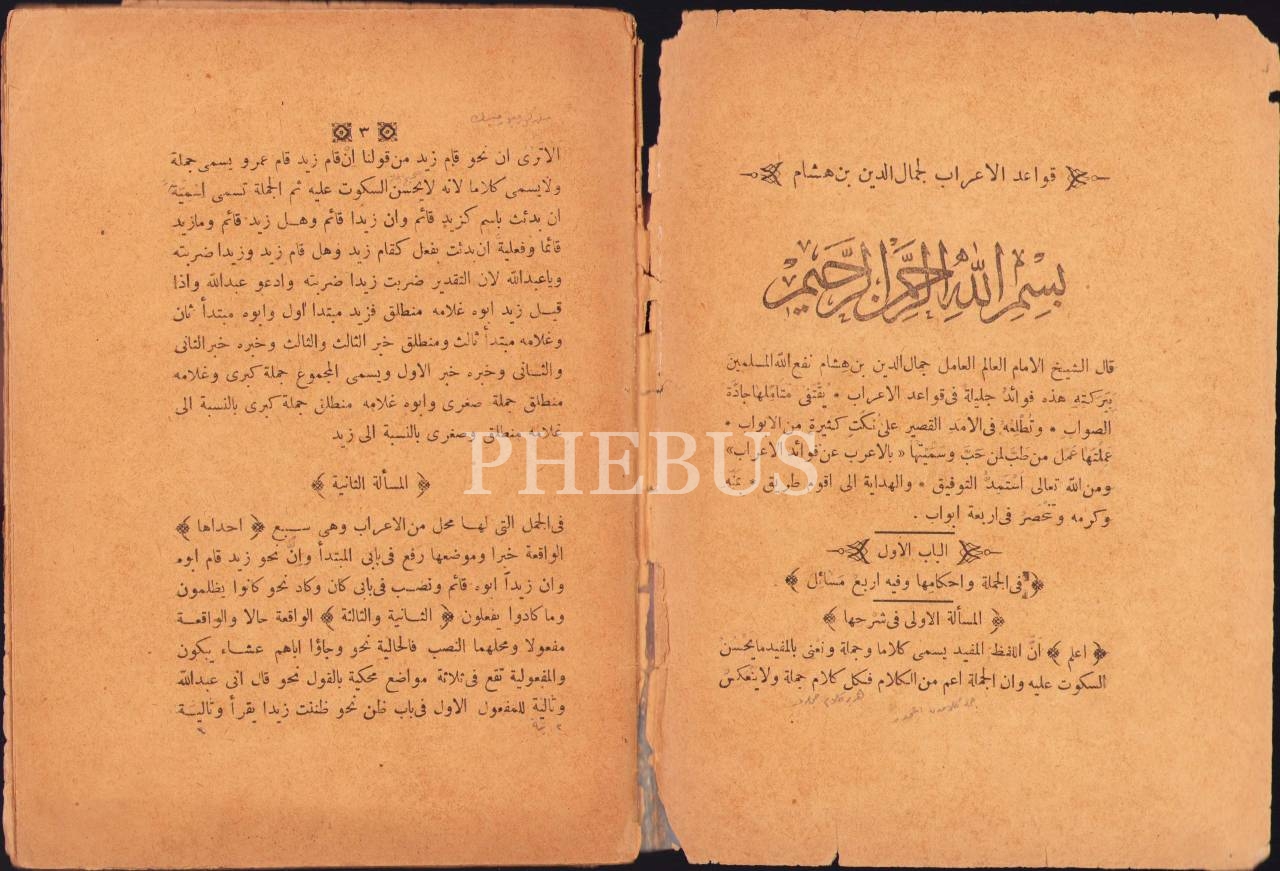 قواعد الاعراب لجمال الدين بن هشام
بِسْمِ اللهِ الرَّحْمٰنِ الرَّحِيمِ
قال الشيخ الامام العالم العامل جمال الدين بن هِشام نفع الله المسلمينَ
بِبَرَكتهِ هذه فوائدُ جليلةٌ فى قواعد الاعراب * يقتفى متأمِّلها جادَّة
الصواب * وتُطْلِعُه فى الامد القصير على نُكتٍ كثيرةٍ من الابواب *
عملتها عَمَل من طبَّ لمن حَبَّ وسمَّيْتها «بالاعرب عن قوائد الاعراب»
ومن الله تعالى استمدُّ التوفيق * والهداية الى اقوم طريق * بمَنّه
وكرمه وتنحصر فى اربعة ابواب .
الباب الاول
﴿ فى الجملة واحكامها وفيه اربع مَسَائِل ﴾
﴿ المسألة الاولى فى شرحها ﴾
﴿ اعلم ﴾ انَّ اللفظ المفيد يسمى كلاما وجملة ونعنى بالمفيد ما يحسن
السكوت عليه وان الجملة اعم من الكلام فكل كلام جملة ولا ينعكسُ
٣
الاترى ان نحو قام زيد من قولنا ان قام زيد قام عمرو يسمى جملة
ولا يسمى كلاما لانه لايحسن السكوت عليه ثم الجملة تسمى اسمية
ان بدئت باسم كزيد قائم وان زيدا قائم وهـل زيد قائم ومازيد
قائما وفعلية ان بدئت بفعل كقام زيد وهل قام زيد وزيدا ضربته
وياعبدالله لان التقدير ضربت زيدا ضربته وادعو عبدالله واذا
قيـل زيد ابوه غلامه منطلق فزيد مبتدأ اول وابوه مبتدأ ثان
وغلامه مبتدأ ثالث ومنطلق خبر الثالث والثالث وخبره خبر الثانى
والثـانى وخبره خبر الاول ويسمى المجموع جملة كبرى وغلامه
منطلق جملة صغرى وابوه غلامه منطلق جملة كبرى بالنسبة الى
غلامه منطلق وصغرى بالنسبة الى زيد
﴿ المسألة الثانية ﴾
فى الجمل التى لهـا محل من الاعراب وهى سـبع ﴿ احداها ﴾
الواقعة خبرا وموضعها رفع فى بابى المبتدأ وانّ نحو زيد قام ابوه
وان زيداً ابوه قائم ونصب فى بابى كان وكاد نحو كانوا يظلمون
وما كادوا يفعلون ﴿ الثـانية والثالثة ﴾ الواقعة حالا والواقعـة
مفعولا ومحلهما النصب فالحالية نحو وجاؤا اباهم عشـاء يبكون
والمفعولية تقع فى ثلاثة مواضع محكية بالقول نحو قال انى عبدالله
وتالية للمفعول الاول فى باب ظن نحو ظننت زيدا يقرأ وتاليـة
PHEBUS